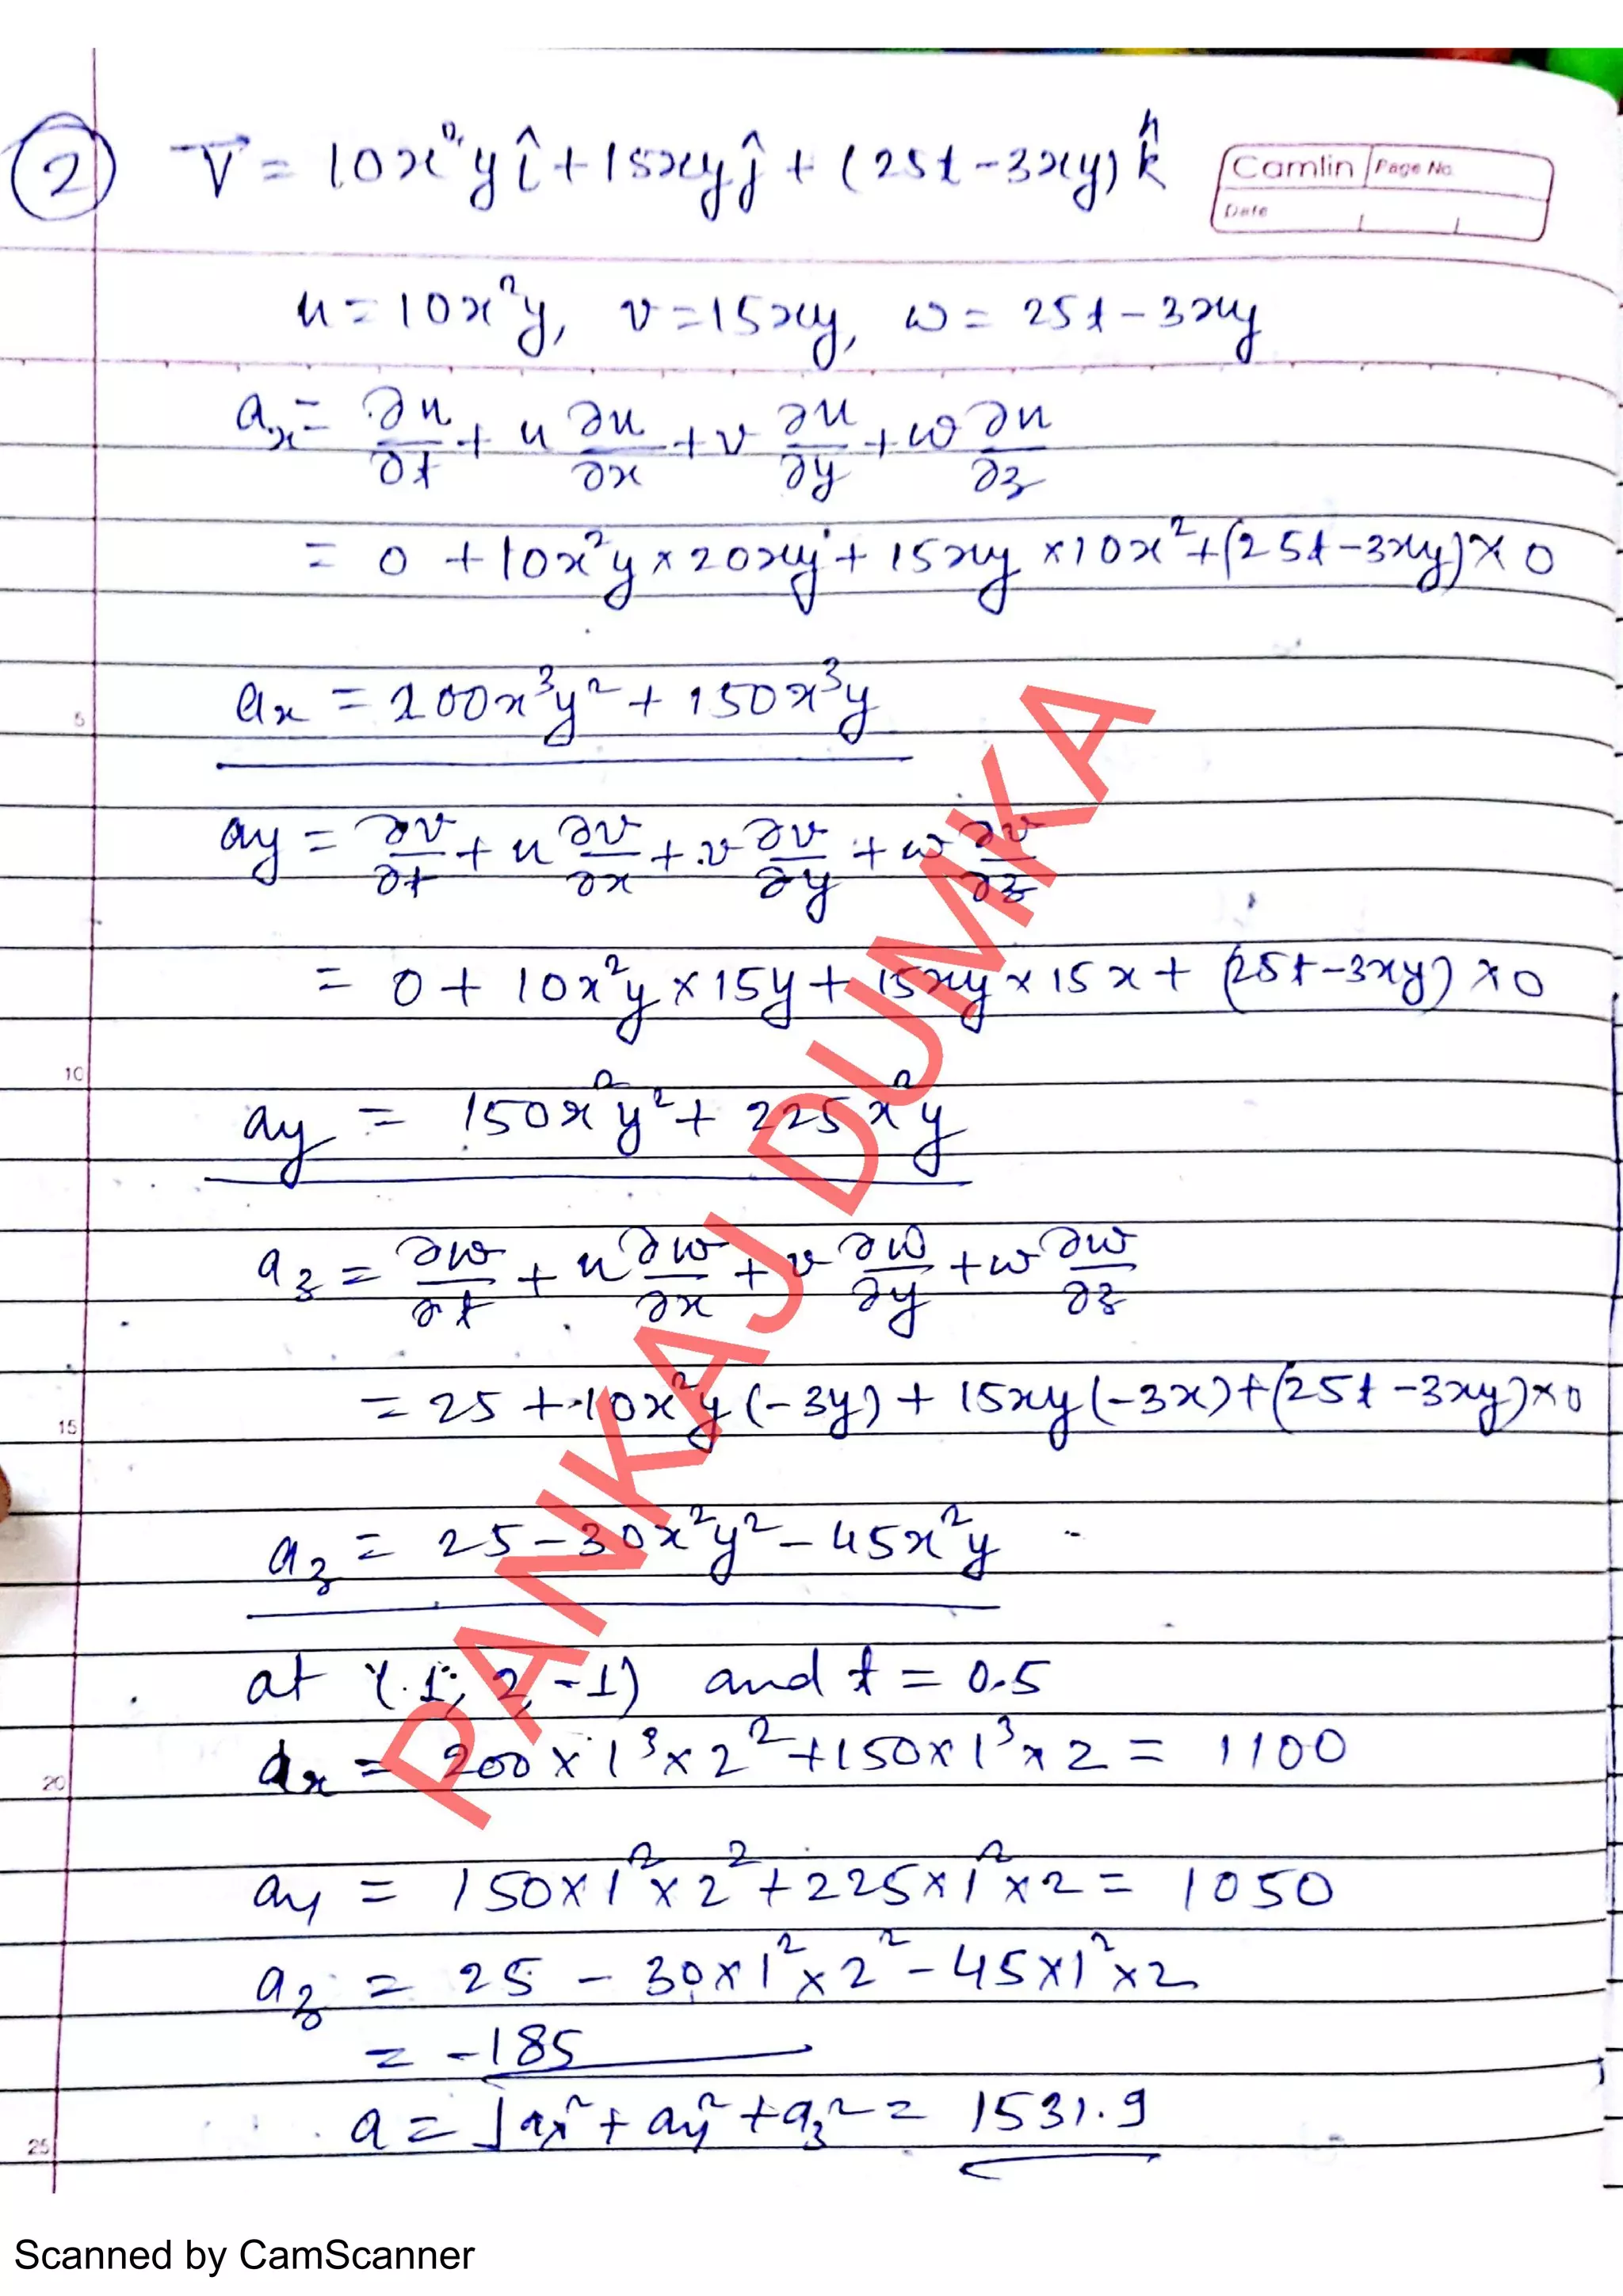 ② V⃗ = 10x²y î + 15xy ĵ + (25t - 3xy) k̂
Camlin Page No.
Date
u = 10x²y, v = 15xy, w = 25t - 3xy
aₓ = ∂u/∂t + u ∂u/∂x + v ∂u/∂y + w ∂u/∂z
= 0 + 10x²y × 20xy + 15xy × 10x² + (25t - 3xy) × 0
5
aₓ = 200x³y² + 150x³y
ay = ∂v/∂t + u ∂v/∂x + v ∂v/∂y + w ∂v/∂z
= 0 + 10x²y × 15y + 15xy × 15x + (25t - 3xy) × 0
10
ay = 150x²y² + 225x²y
az = ∂w/∂t + u ∂w/∂x + v ∂w/∂y + w ∂w/∂z
= 25 + 10x²y (-3y) + 15xy (-3x) + (25t - 3xy) × 0
15
az = 25 - 30x²y² - 45x²y
at (1, 2, -1) and t = 0.5
aₓ = 200 × 1³ × 2² + 150 × 1³ × 2 = 1100
20
ay = 150 × 1² × 2² + 225 × 1² × 2 = 1050
az = 25 - 30 × 1² × 2² - 45 × 1² × 2
= -185
a = √aₓ² + ay² + az² = 1531.9
25
PANKAJ DUMKA
Scanned by CamScanner